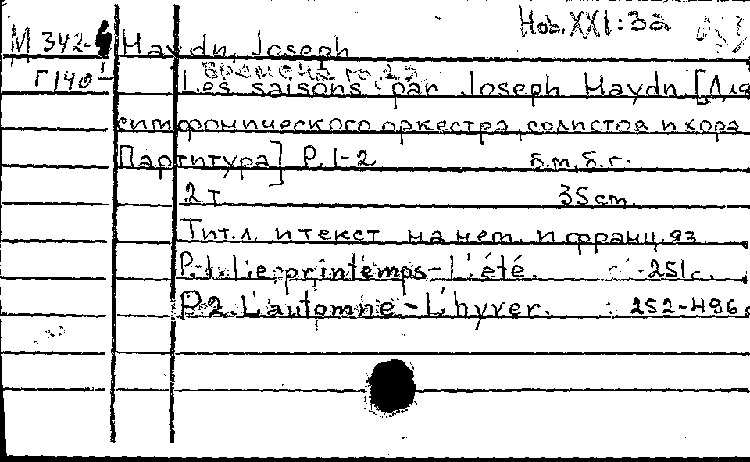 Hob. XXI:3a
М 342-
Haydn, Joseph
Г140
Времена года
Les saisons par Joseph Haydn [Для
симфонического оркестра, солистов и хора
Партитура] P. 1-2 б.м., б.г.
2 т 35 cm.
Тит.л. и текст на нем. и франц. яз.
P.1. Le printemps - L'été. -251 с.
P.2. L'automne - L'hyver. 252-496 с